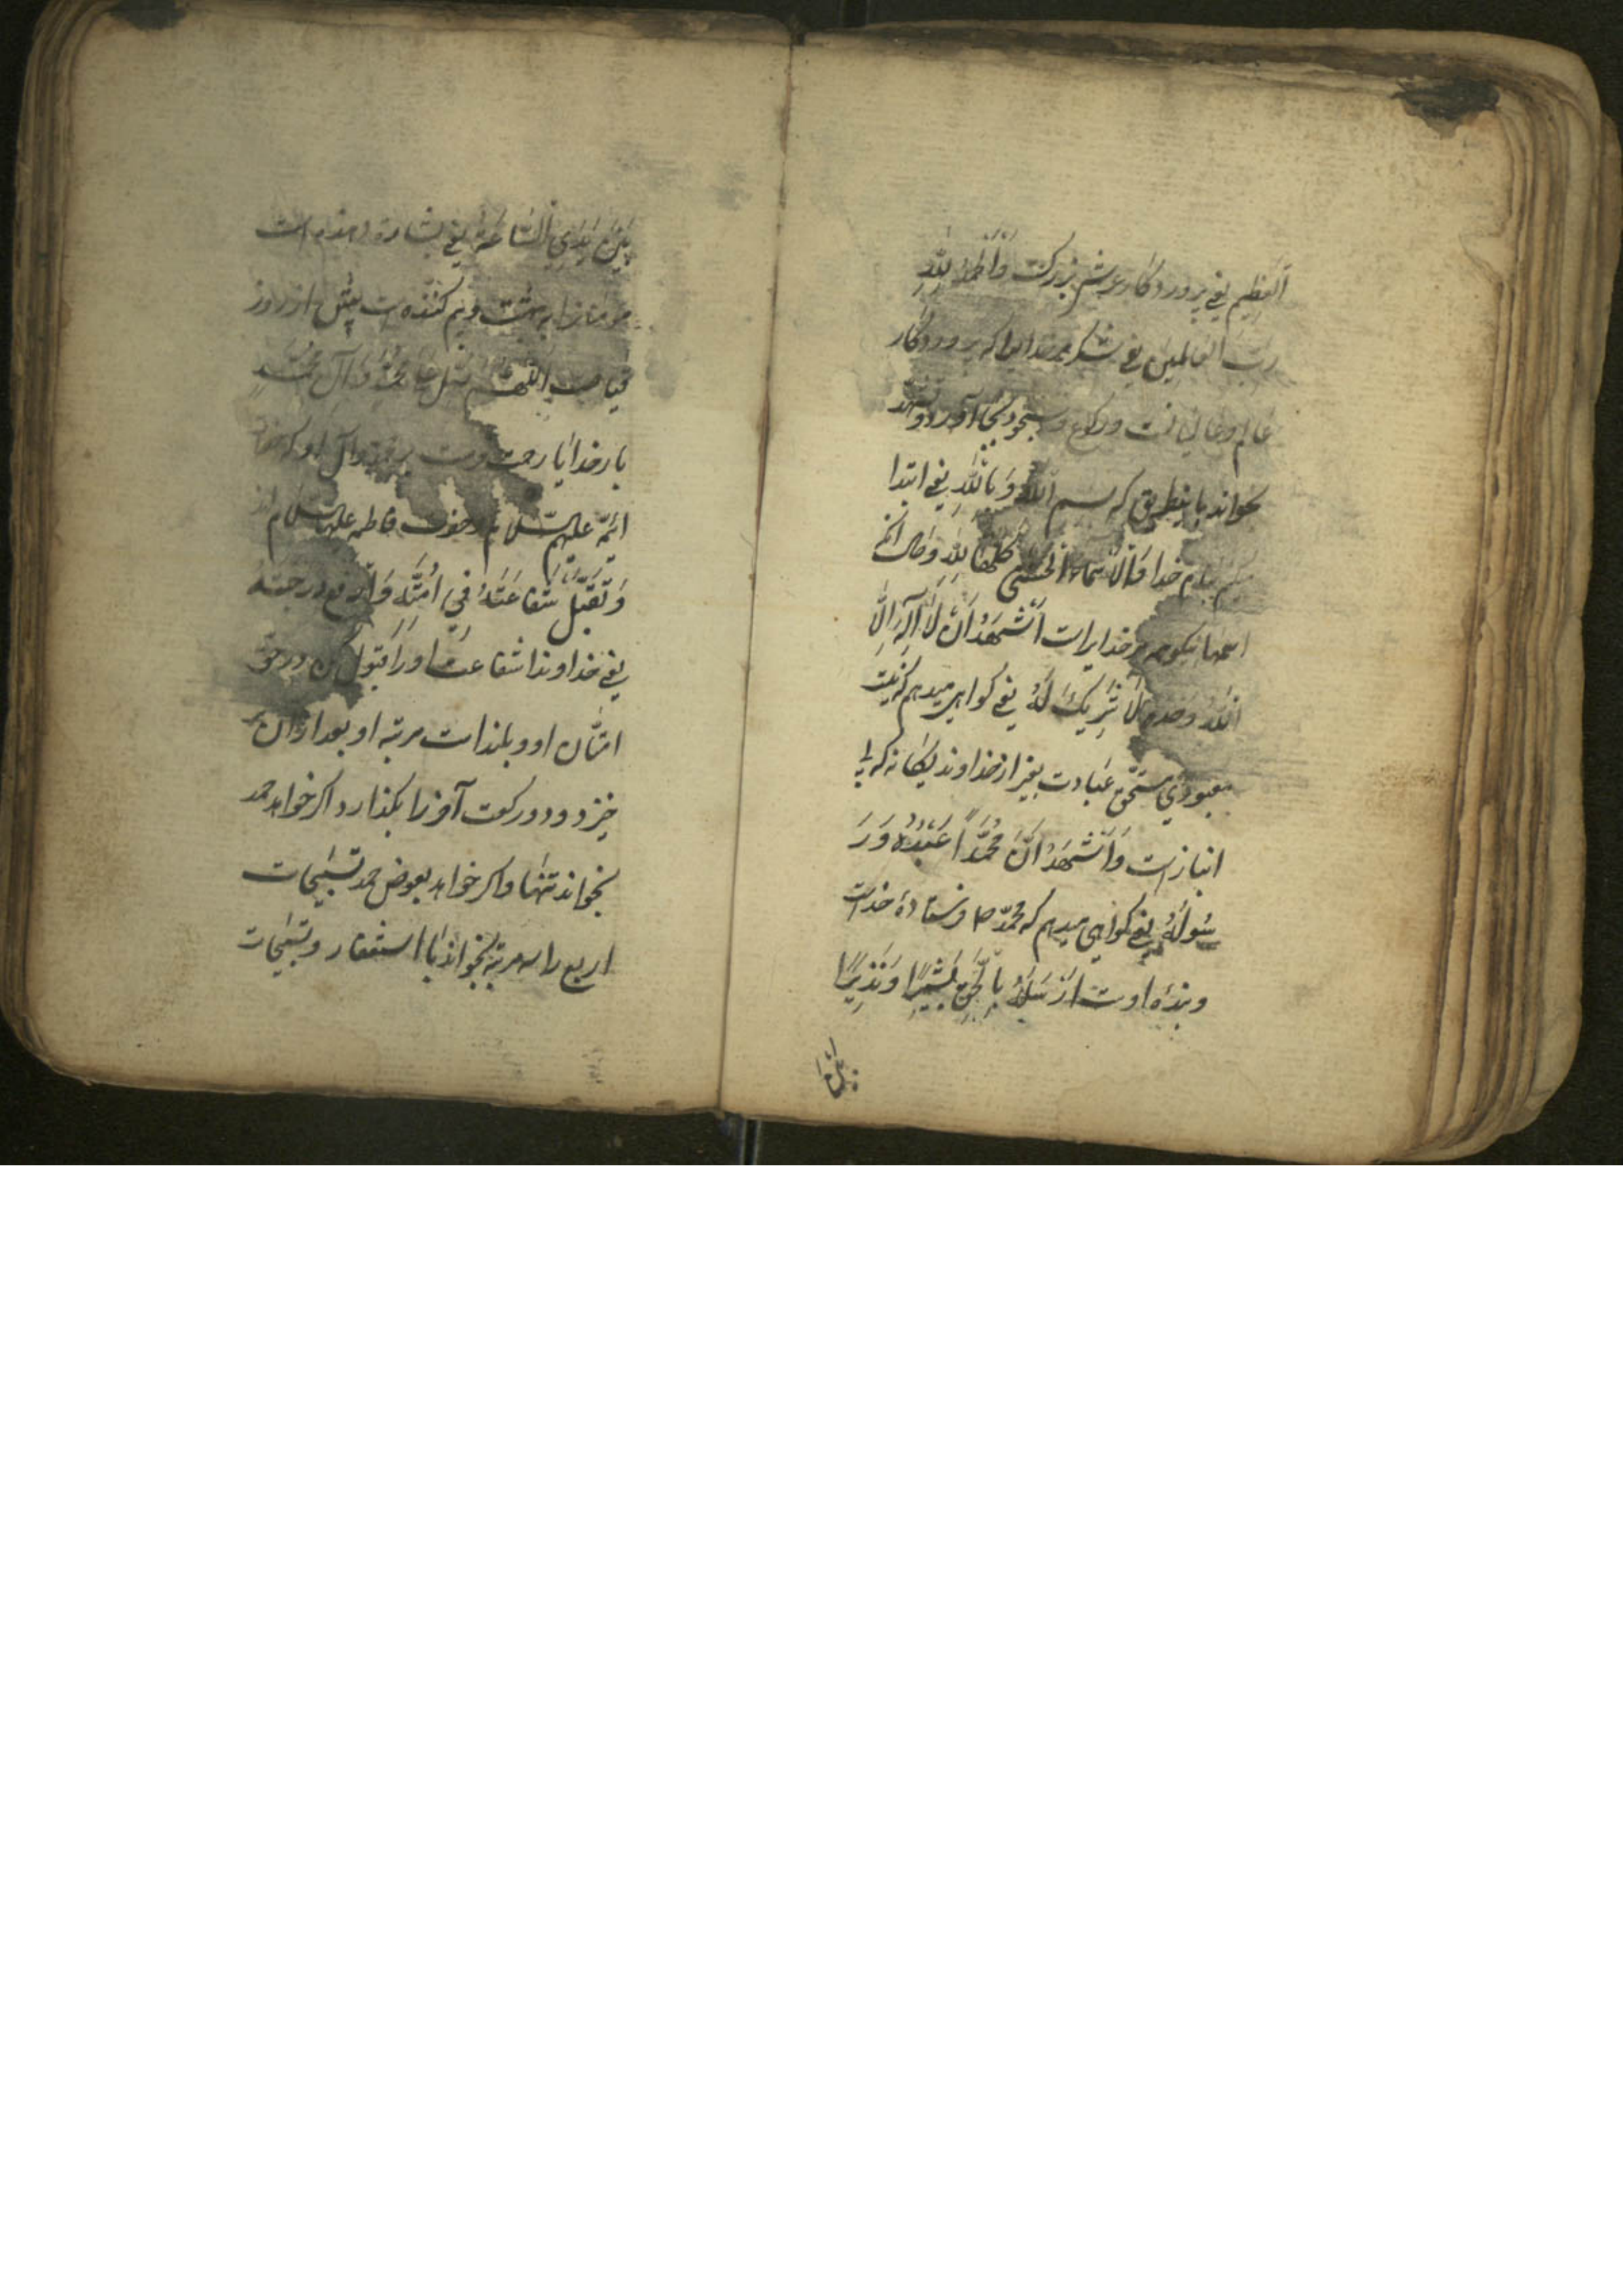 اَلعَظِیمِ یعنی پروردگار عرش بزرگست وَاَلحَمدُ لِلّٰهِ
رَبِّ العَالَمِینَ یعنی شکر مر خدایرا که پروردگار
عالم و عالمیانست و رکوع و سجود بجا آورد و تشهد
بخواند باینطریق که بسم اللّٰهِ وَ بِاللّٰهِ یعنی ابتدا
میکنم بنام خدا وَاَلاَسمَاءُ الحُسنٰی کُلُّهَا لِلّٰهِ
اسمها نیکو همه مر خدایراست اَشهَدُ اَن لَا اِلٰهَ اِلَّا
اللّٰهُ وَحدَهُ لَا شَرِیکَ لَهُ یعنی کواهی میدهم که نیست
معبودی مستحق عبادت بغیر از خداوند یکانه که بی
انبازست وَاَشهَدُ اَنَّ مُحَمَّداً عَبدُهُ وَرَ
سُولُهُ یعنی کواهی میدهم که محمّد ص فرستادهٔ خداست
و بندهٔ اوست اَرسَلَهُ بِالحَقِّ بَشِیرًا وَنَذِیرًا
بَینَ یَدَیِ السَّاعَةِ یعنی بشارت دهنده است
مومنانرا به بهشت و بیم کننده است پیش از روز
قیامت اَللّٰهُمَّ صَلِّ عَلیٰ مُحَمَّدٍ وَ آلِ مُحَمَّدٍ
بار خدایا رحمت فرست بر محمد و آل او که
ائمّه علیهم السّلام و حضرت فاطمه علیها السلام اند
وَ تَقَبَّل شَفَاعَتَهُ فِی اُمَّتِهِ وَارفَع دَرَجَتَهُ
یعنی خداوندا شفاعت او را قبول کن در حق
امّتان او و بلندست مرتبه او بعد ازان بر
خیزد و دو رکعت آخر را بکذارد اکر خواهد حمد
بخواند تنها و اکر خواهد بعوض حمد تسبیحات
اربع را سه مرتبه بخواند با استغفار و تسبیحات